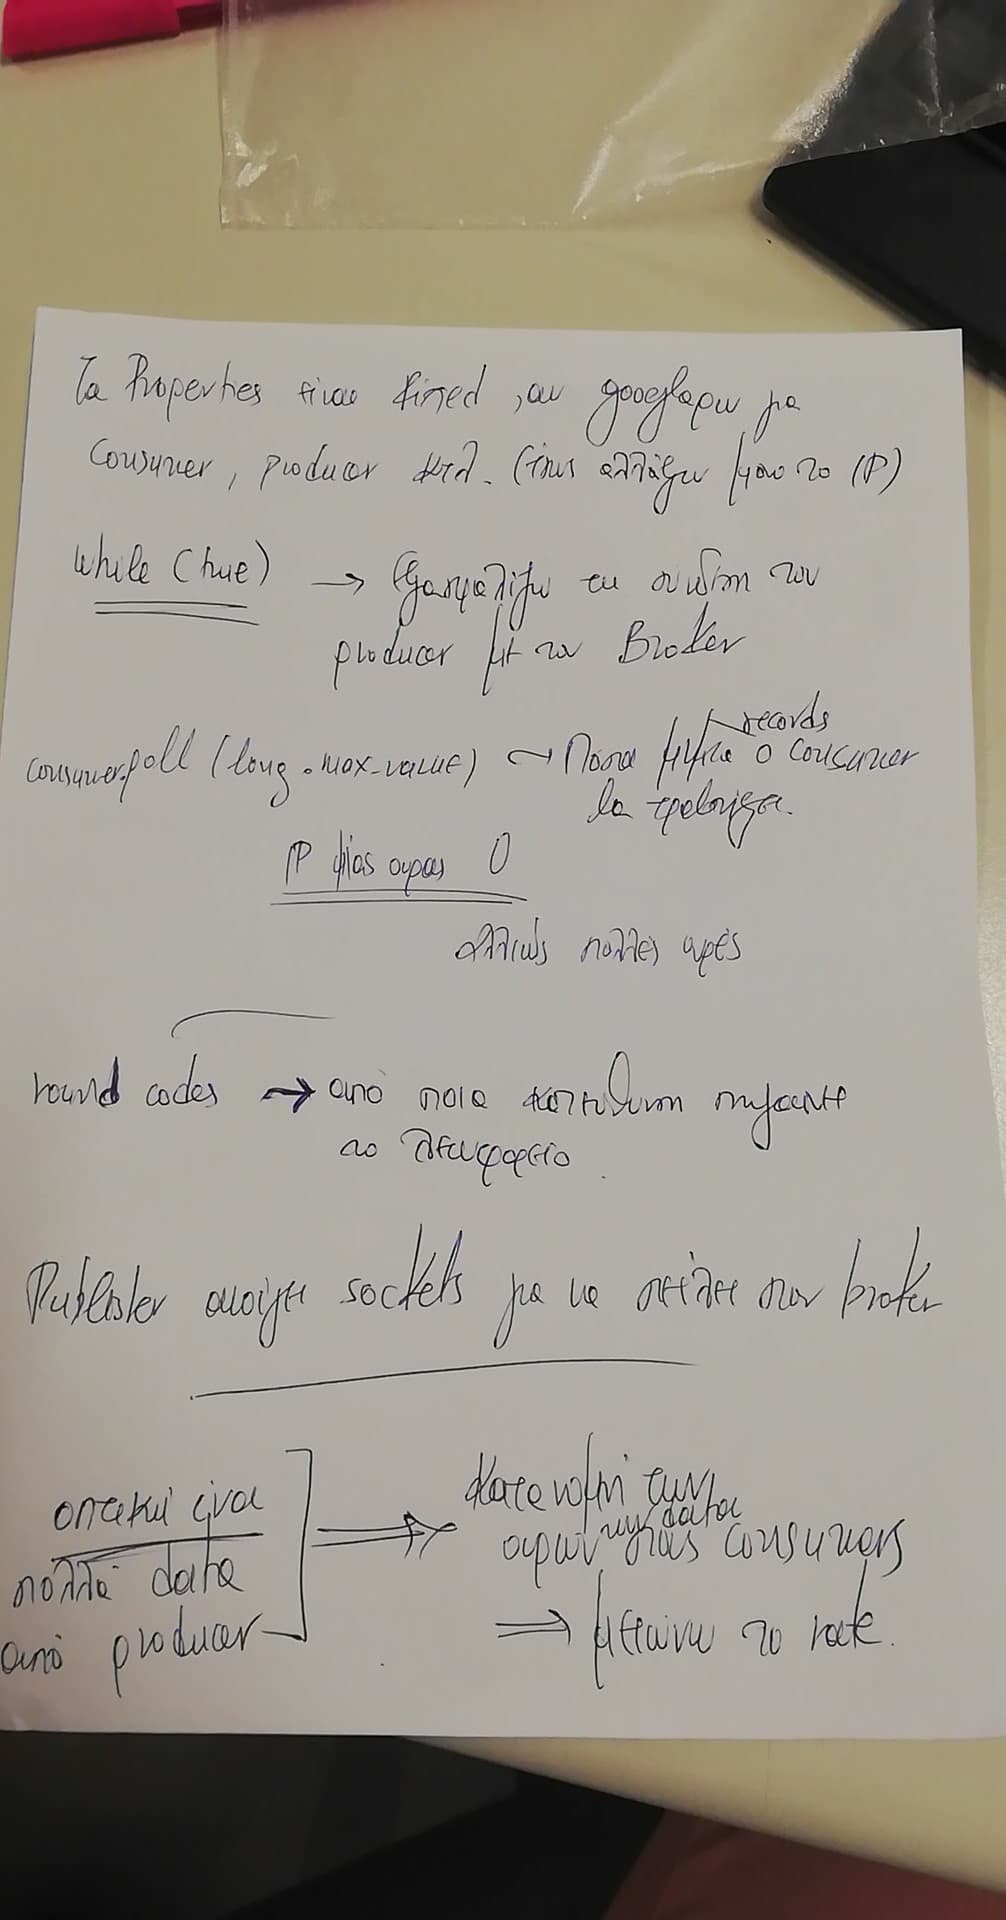 Τα Properties είναι fixed, αν googlαρω για
consumer, producer κτλ. (ίσως αλλάξω μόνο το IP)
while (true) → Εξασφαλίζω τη σύνδεση του
producer με τον Broker
records
consumer.poll (long.max_value) → Πόσα μπορεί ο consumer
να τραβήξει.
IP μίας ουράς
αλλιώς πολλές
round codes → από ποια κατεύθυνση πηγαίνει
το λεωφορείο.
Publisher ανοίγει sockets για να στείλει στον broker
οπτική ίνα
πολλά data
από producer
Κατανομή των
data
ουρών στους consumers
⇒ μειώνω το rate.